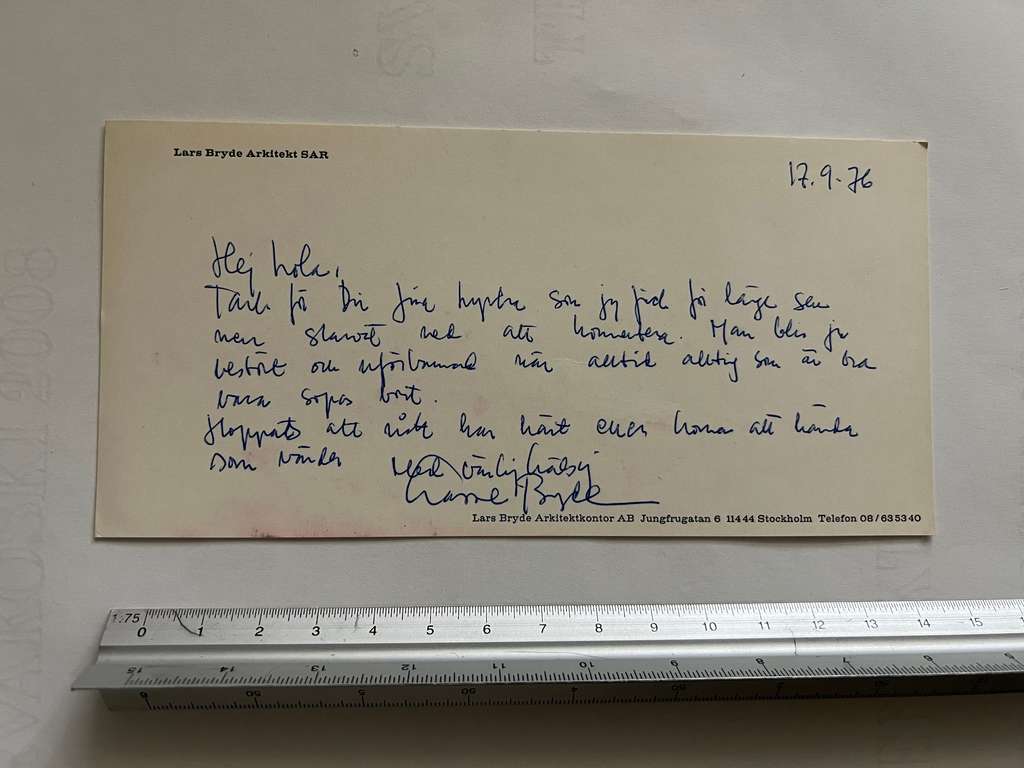 Lars Bryde Arkitekt SAR
17.9-76
Hej
Tack för Din fina som jag fick för länge sen
men att kommentera. Man blir ju
bestört och när alltid allting som är bra
bara sopas bort.
Hoppas att har hänt eller kommer att hända
som vänder
Med vänlig hälsning
Lasse Bryde
Lars Bryde Arkitektkontor AB Jungfrugatan 6 11444 Stockholm Telefon 08/635340
1:75 0 1 2 3 4 5 6 7 8 9 10 11 12 13 14 15
15 14 13 12 11 10 9 8 7 6 5